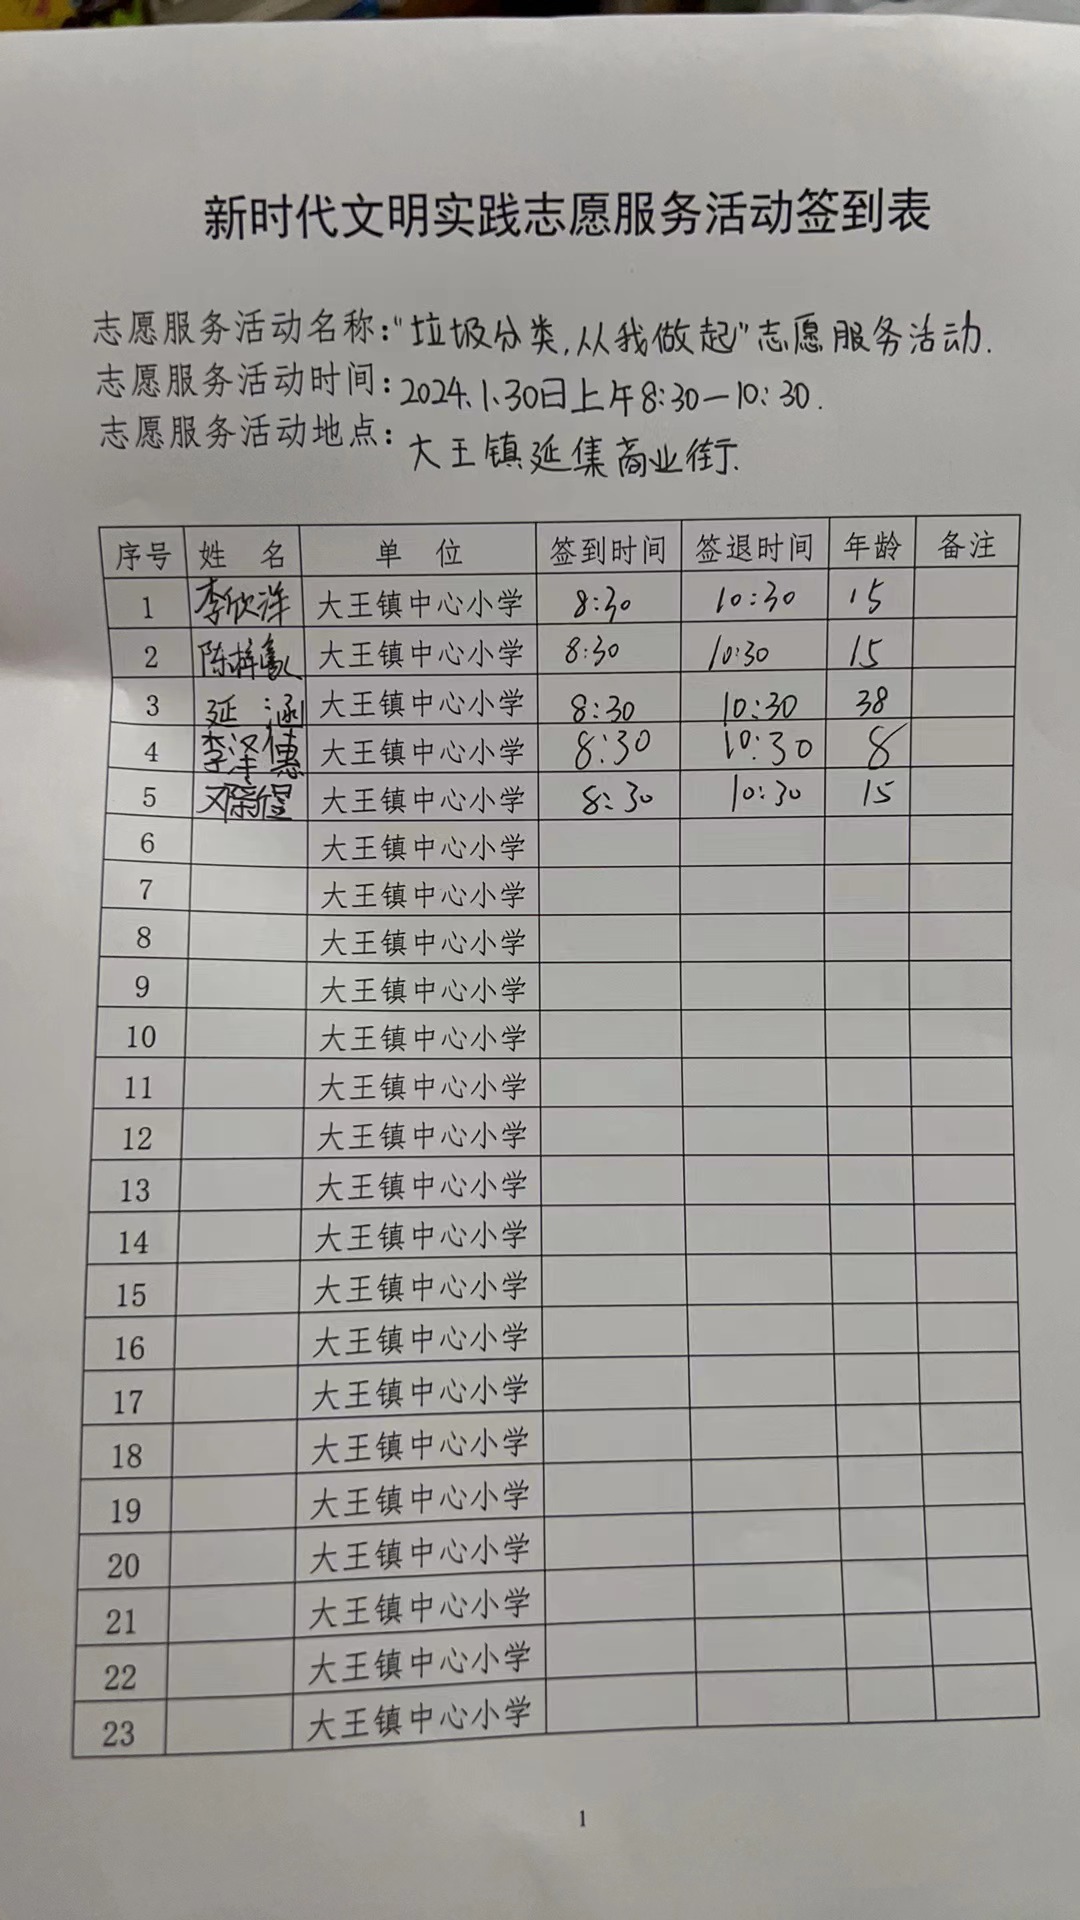 新时代文明实践志愿服务活动签到表
志愿服务活动名称："垃圾分类,从我做起"志愿服务活动.
志愿服务活动时间：2024.1.30日上午8:30—10:30.
志愿服务活动地点：大王镇延集商业街.
序号 姓 名 单 位 签到时间 签退时间 年龄 备注
1 李欣洋 大王镇中心小学 8:30 10:30 15
2 陈梓 大王镇中心小学 8:30 10:30 15
3 延涵 大王镇中心小学 8:30 10:30 38
4 李泽 大王镇中心小学 8:30 10:30 8
5 大王镇中心小学 8:30 10:30 15
6 大王镇中心小学
7 大王镇中心小学
8 大王镇中心小学
9 大王镇中心小学
10 大王镇中心小学
11 大王镇中心小学
12 大王镇中心小学
13 大王镇中心小学
14 大王镇中心小学
15 大王镇中心小学
16 大王镇中心小学
17 大王镇中心小学
18 大王镇中心小学
19 大王镇中心小学
20 大王镇中心小学
21 大王镇中心小学
22 大王镇中心小学
23 大王镇中心小学
1